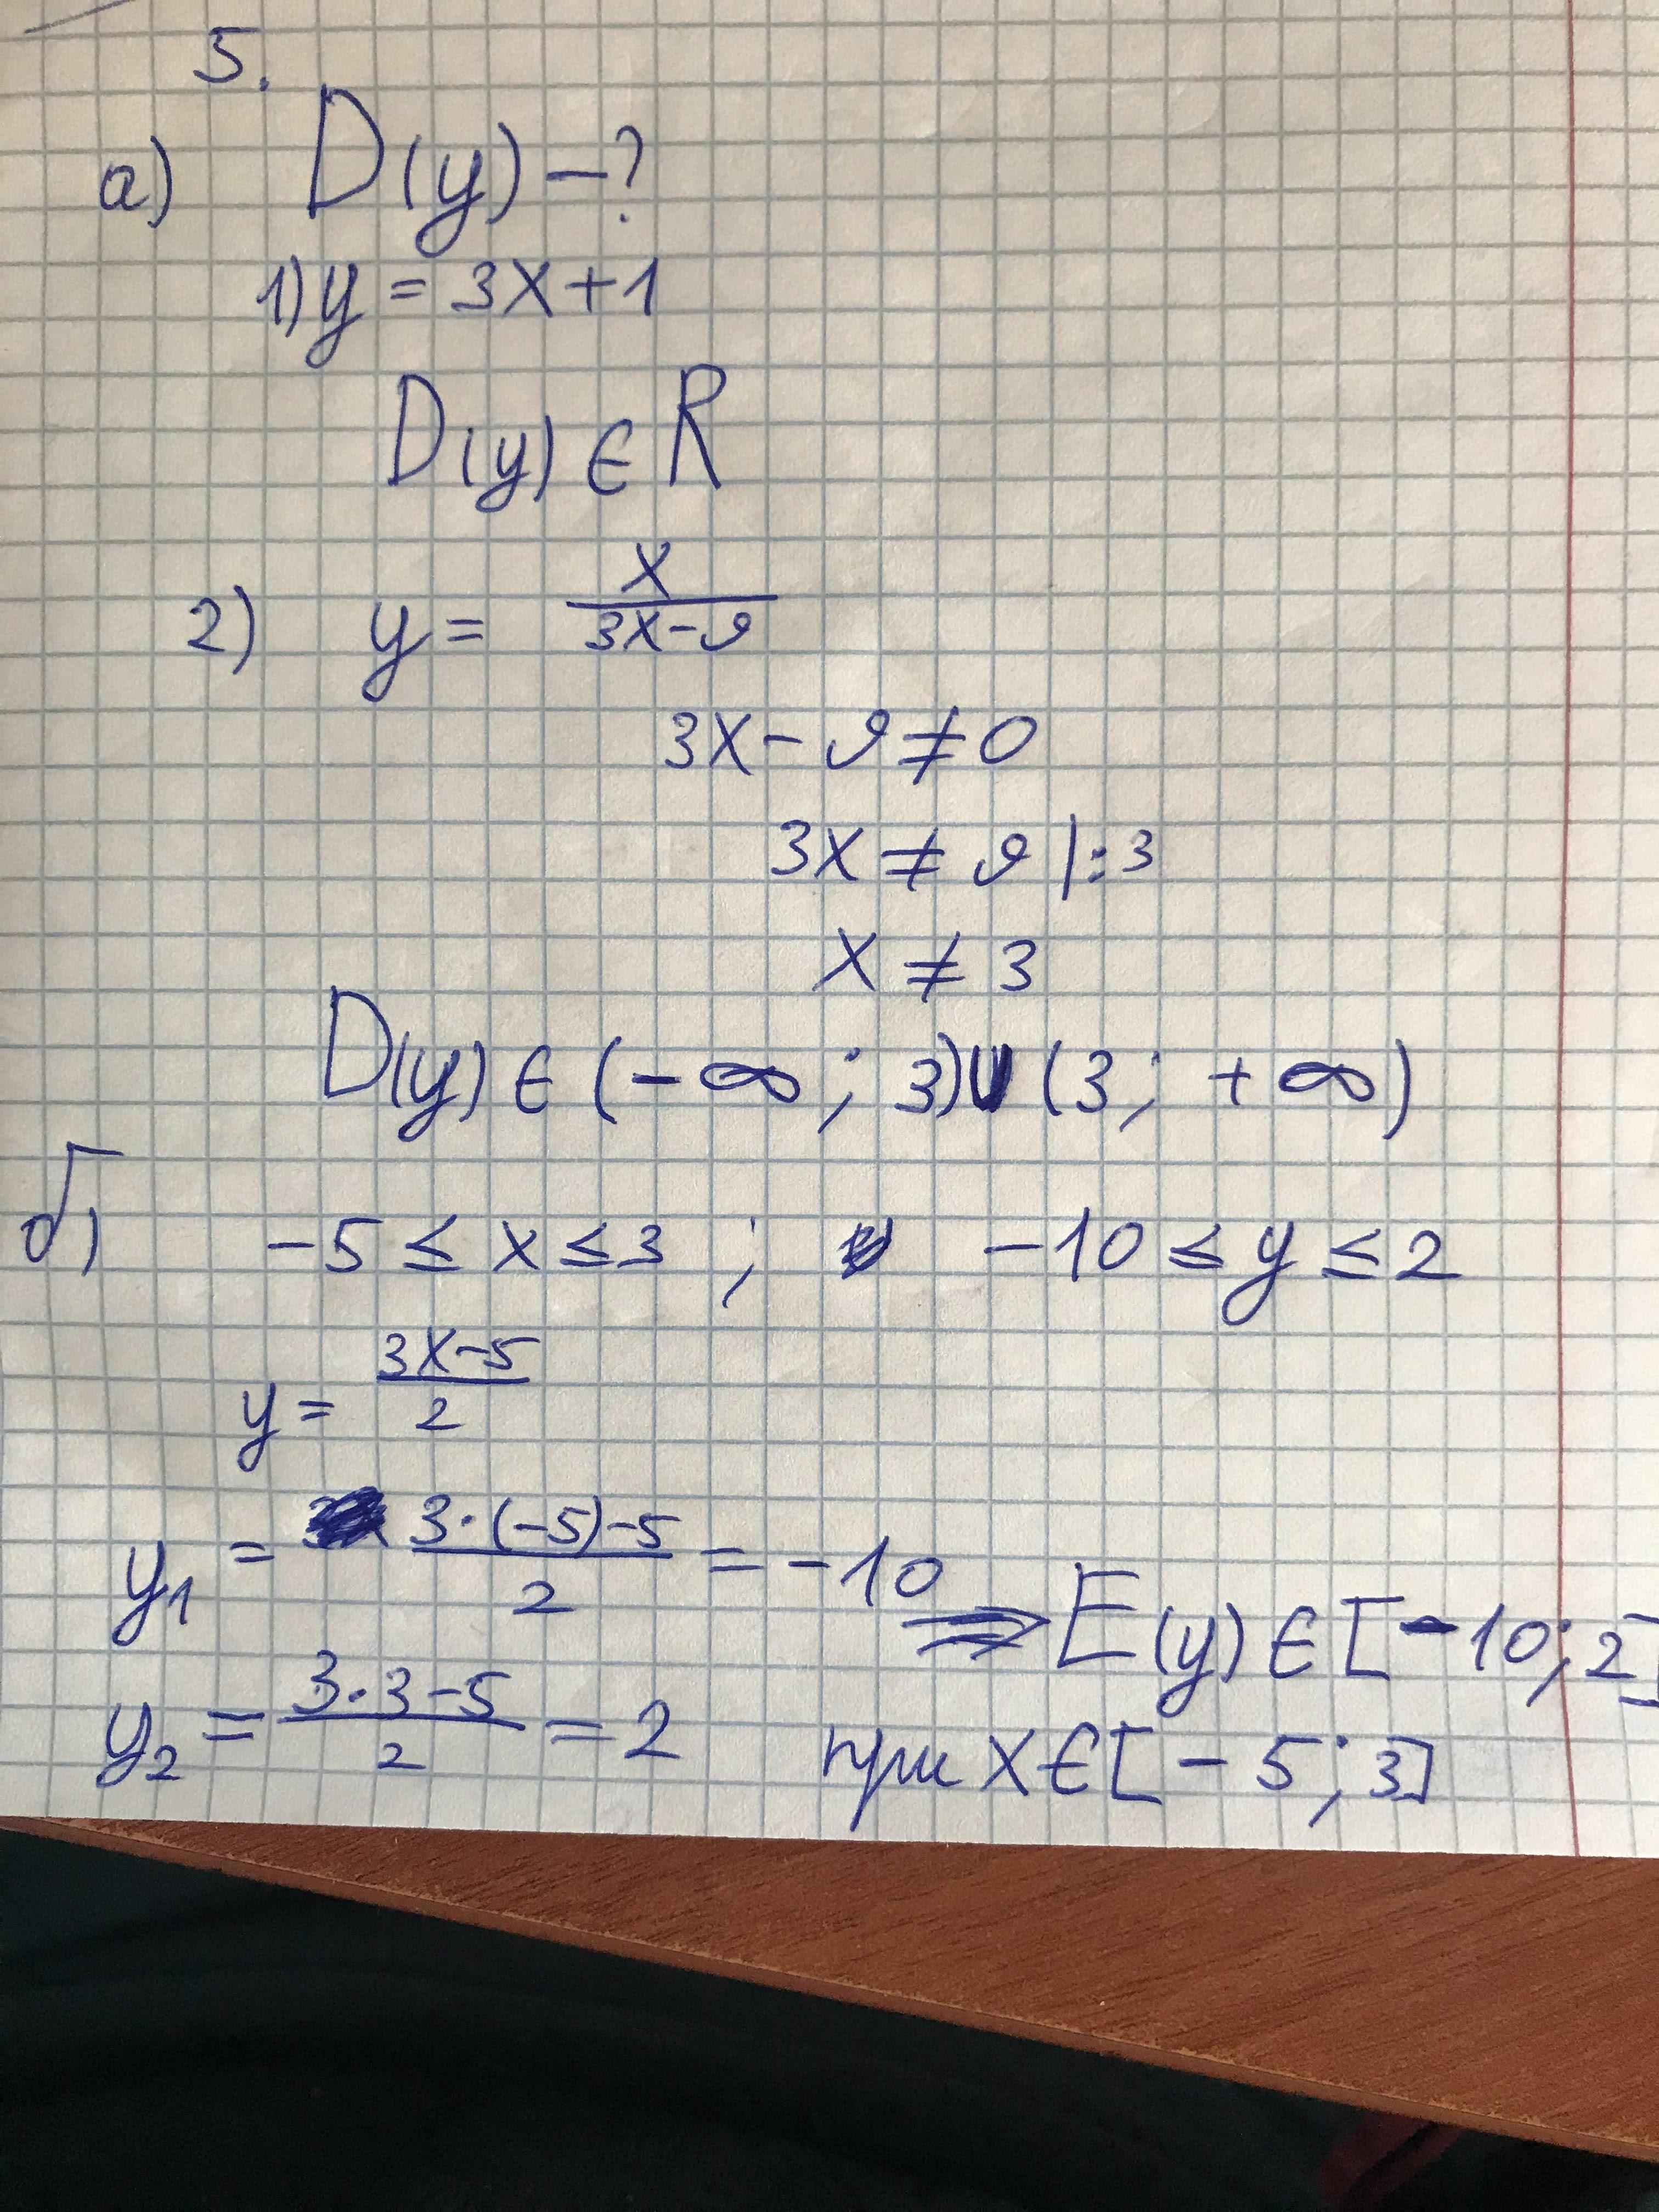 5.
а) D(y) – ?
1) y = 3x + 1
D(y) ∈ R
2) y = x / (3x – 9)
3x – 9 ≠ 0
3x ≠ 9 | : 3
x ≠ 3
D(y) ∈ (– ∞ ; 3) U (3 ; + ∞)
б) –5 ≤ x ≤ 3 ; –10 ≤ y ≤ 2
y = (3x – 5) / 2
y₁ = (3 · (–5) – 5) / 2 = –10
⇒ E(y) ∈ [–10 ; 2]
y₂ = (3 · 3 – 5) / 2 = 2 при x ∈ [– 5 ; 3]